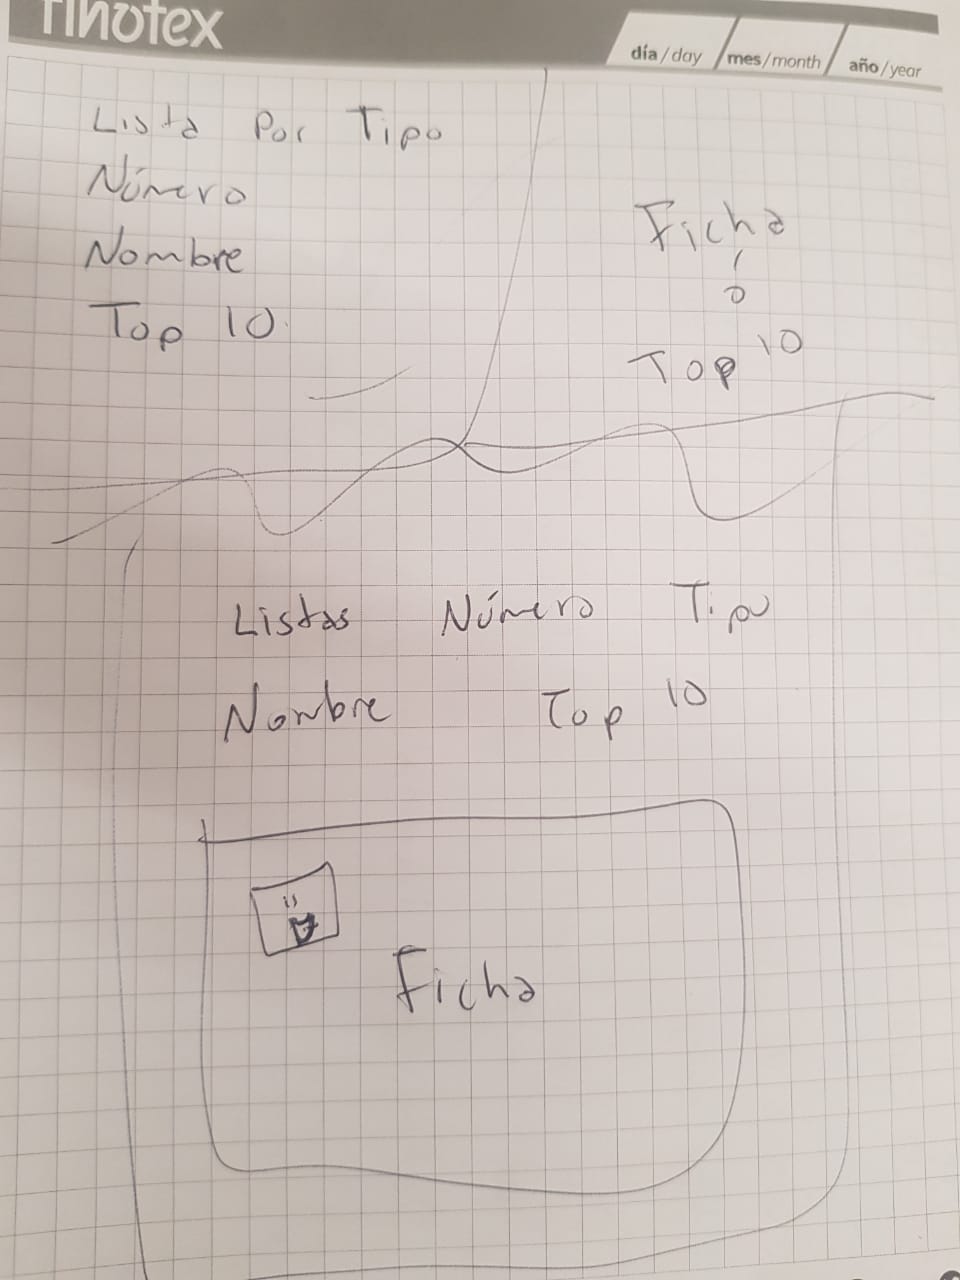 finotex
día/day mes/month año/year
Lista Por Tipo
Número
Nombre
Top 10
Ficha
o
Top 10
Listas Número Tipo
Nombre Top 10
Ficha